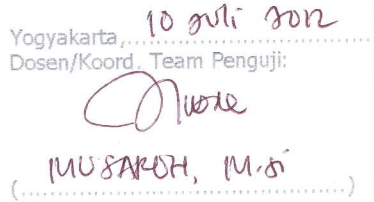 Yogyakarta, 10 Juli 2012
Dosen/Koord. Team Penguji:
MUSAROH, M.si
(......................................)